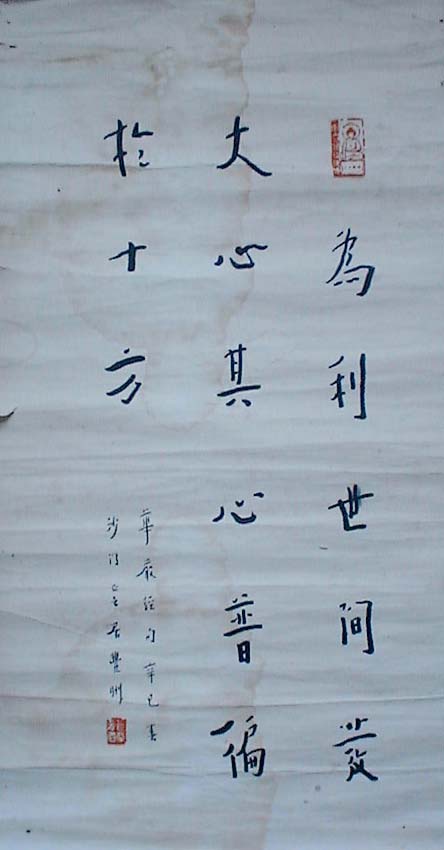 為利世間發
大心其心普徧
於十方
華嚴經句辛巳
沙門亡言居豐州